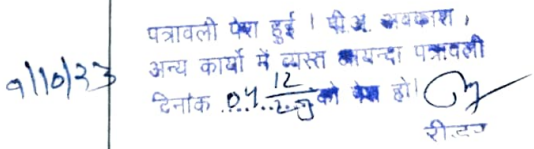 9/10/23
पत्रावली पेश हुई । पी.अ. अवकाश ,
अन्य कार्यो में व्यस्त आयन्दा पत्रावली
दिनांक 04 12 को पेश हो।